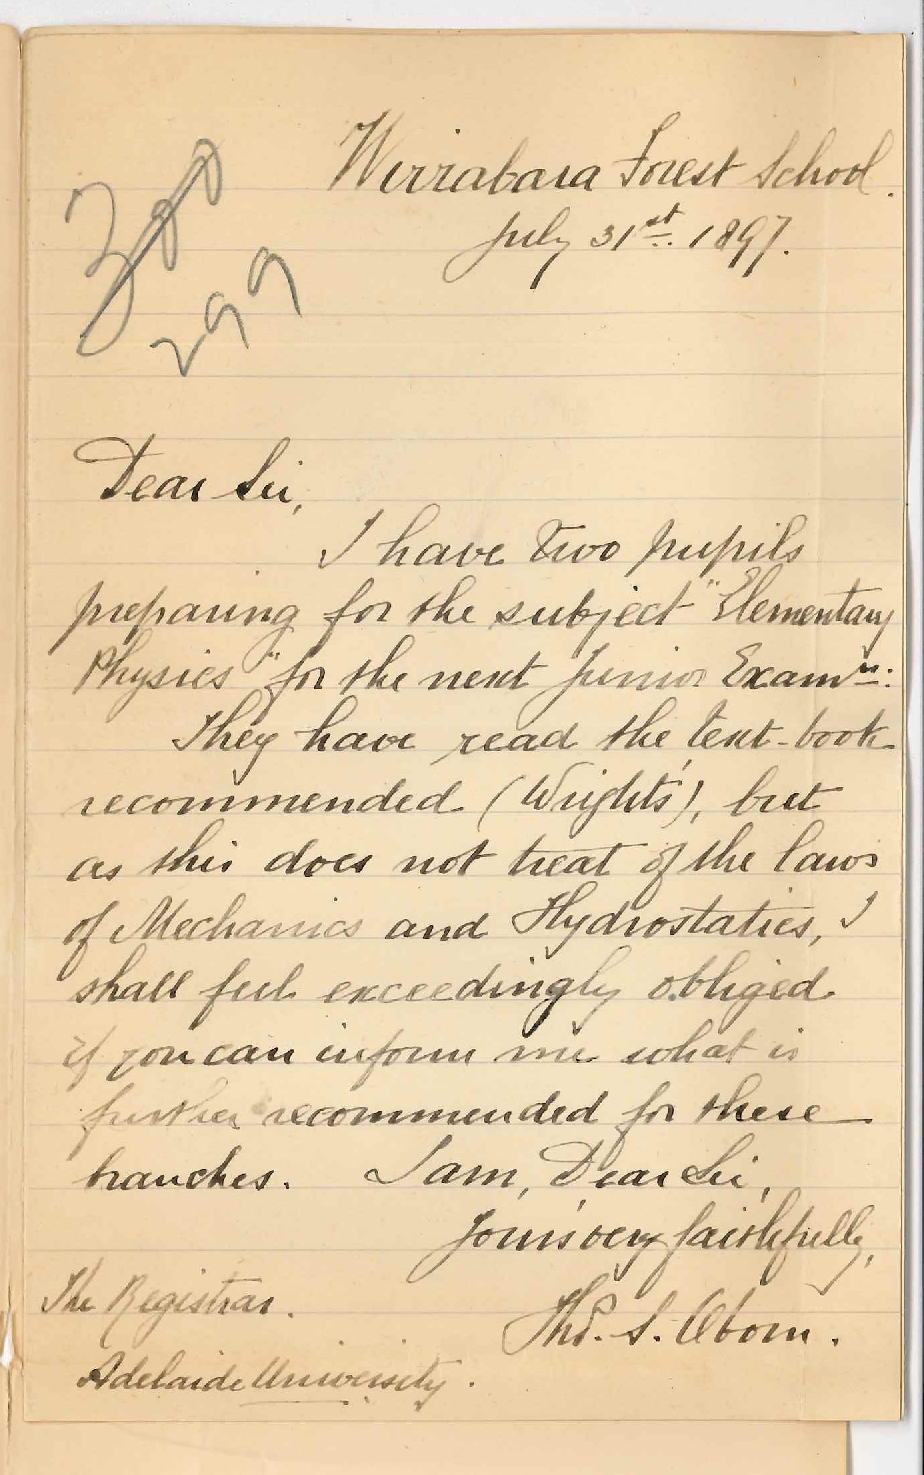 Wirrabara Forest School.
July 31st. 1897.
300
299
Dear Sir,
I have two pupils
preparing for the subject "Elementary
Physics" for the next Junior Examn:
They have read the text-book
recommended (Wright's), but
as this does not treat of the laws
of Mechanics and Hydrostatics, I
shall feel exceedingly obliged
if you can inform me what is
further recommended for these
branches. I am, Dear Sir,
Yours very faithfully,
Thos. S. Oborn.
The Registrar.
Adelaide University.